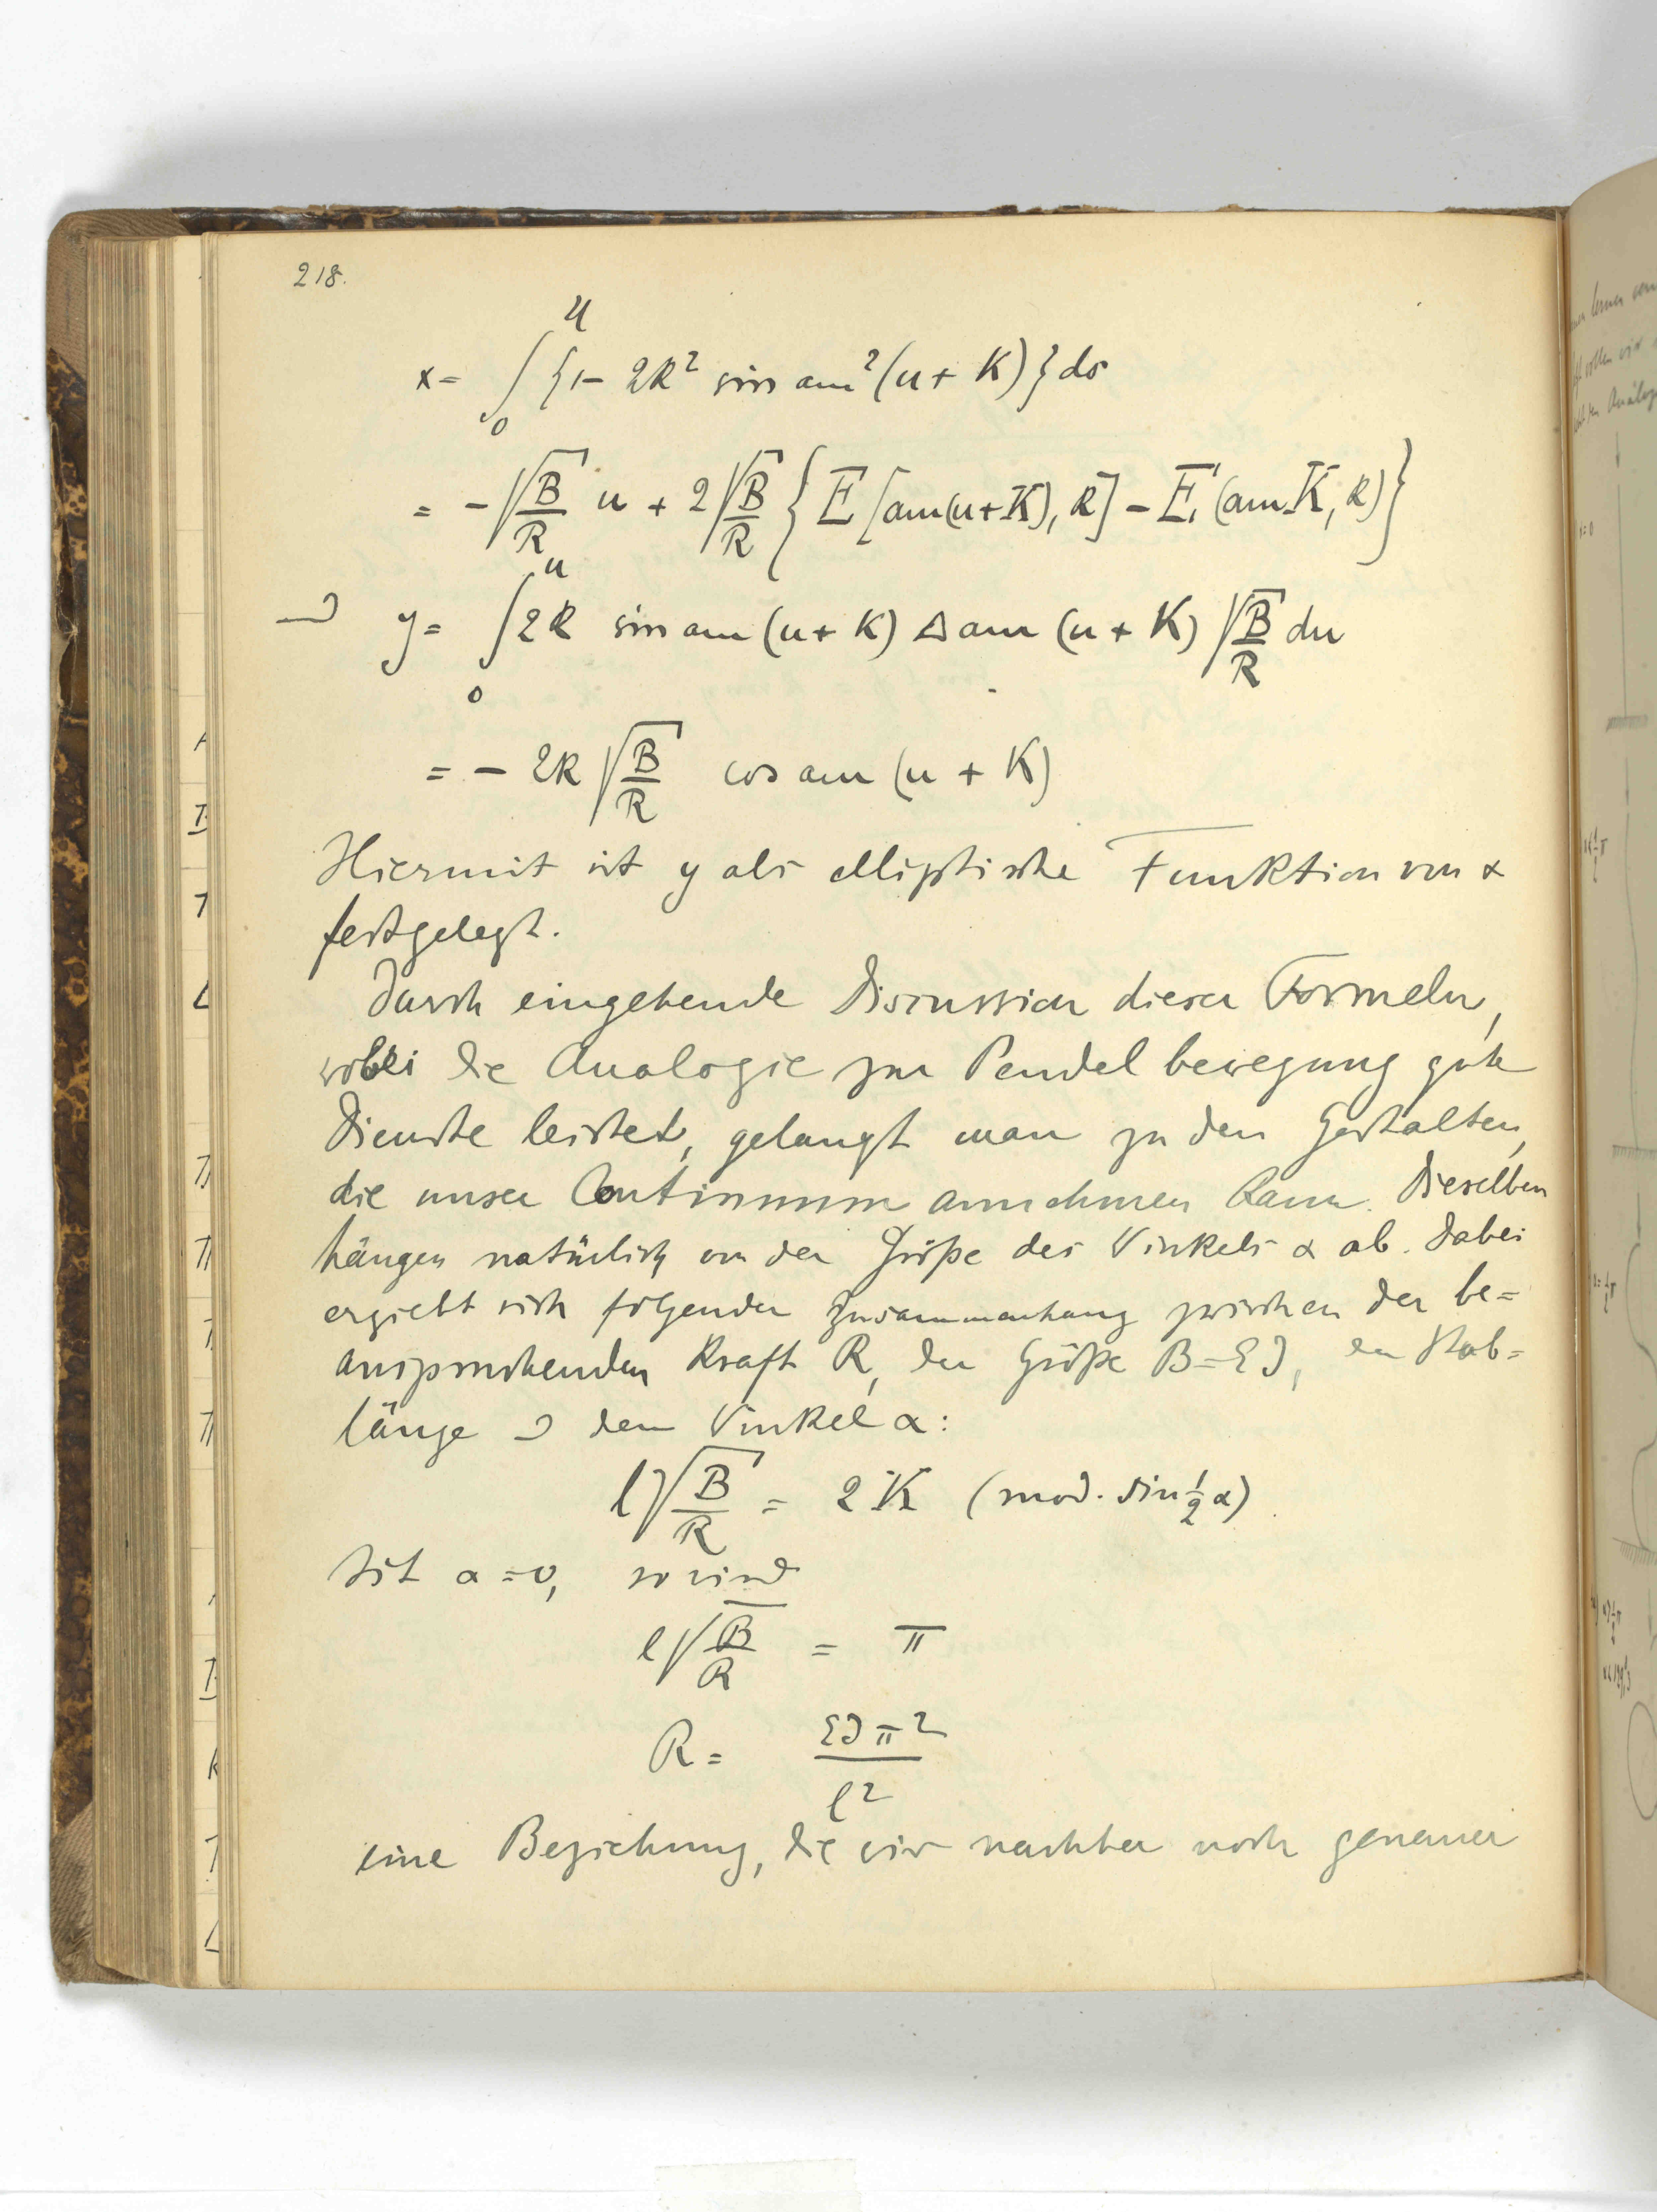 218.
x = ∫₀ᵘ {1 − 2k² sin am² (u + K)} ds
= − √(B/R) u + 2 √(B/R) { E [am(u+K), k] − E (am K, k) }
⁊ y = ∫₀ᵘ 2k sin am (u + K) Δ am (u + K) √(B/R) du
= − 2k √(B/R) cos am (u + K)
Hiermit ist y als elliptische Funktion von x
festgelegt.
Durch eingehende Discussion dieser Formeln,
wobei die Analogie zur Pendelbewegung gute
Dienste leistet, gelangt man zu den Gestalten,
die unser Continuum annehmen kann. Dieselben
hängen natürlich von der Größe des Winkels α ab. Dabei
ergiebt sich folgender Zusammenhang zwischen der be=
anspruchenden Kraft R, der Größe B = EJ, der Stab=
länge ⁊ dem Winkel α:
l √(B/R) = 2 K (mod. sin ½ α)
Ist α = 0, so wird
l √(B/R) = π
R = EJπ² / l²
eine Beziehung, die wir nachher noch genauer